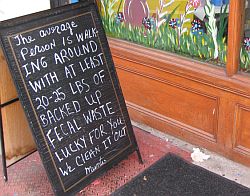 The average
Person is WALK
ING AROUND
WITH AT LEAST
20-25 LBS OF
BACKED UP
FECAL WASTE
LUCKY FOR YOU
WE CLEAN IT OUT